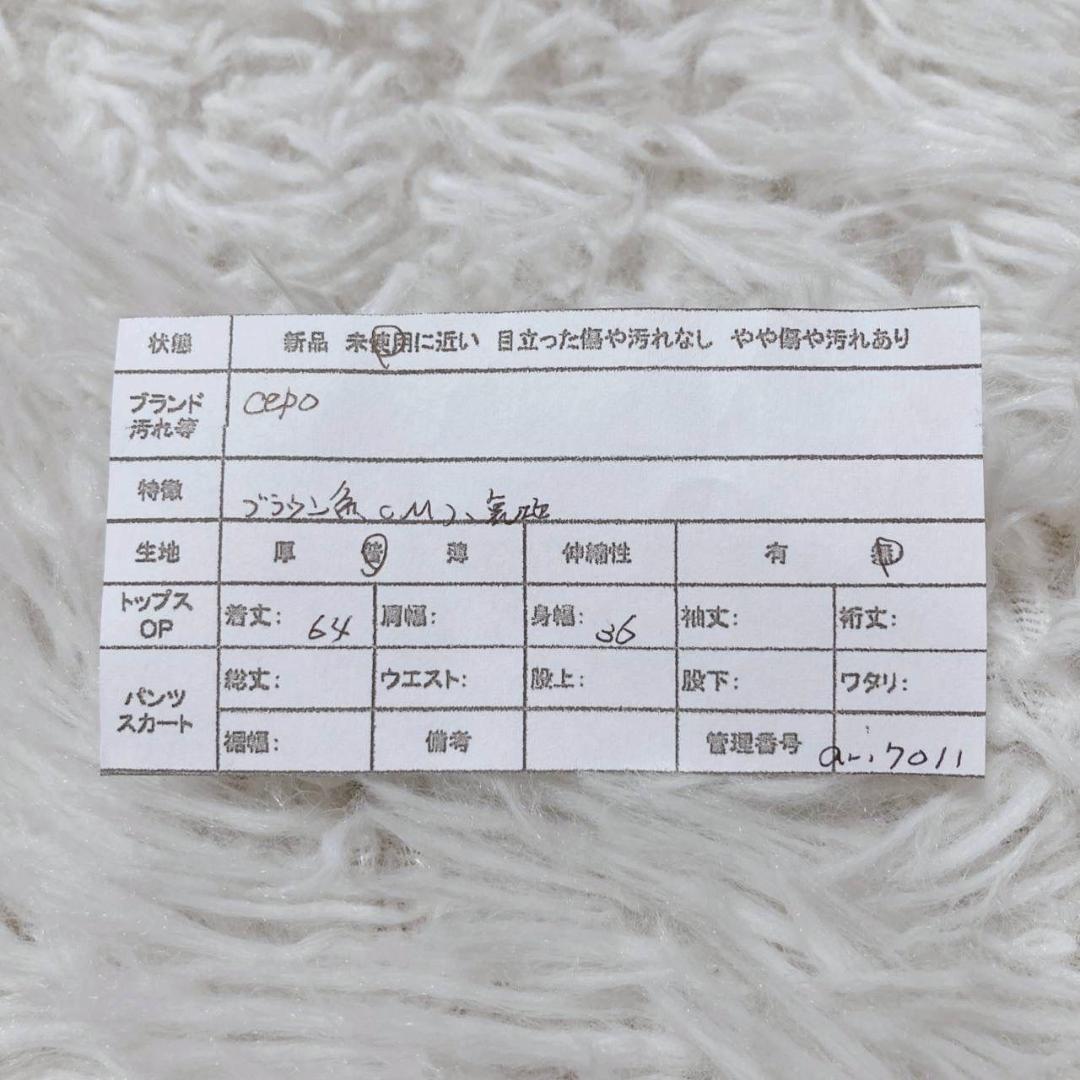 状態 新品 未使用に近い 目立った傷や汚れなし やや傷や汚れあり
ブランド cepo
汚れ等
特徴 ブラウン系 (M)、
生地 厚 普 薄 伸縮性 有 無
トップス OP 着丈: 64 肩幅: 身幅: 36 袖丈: 裄丈:
パンツ スカート 総丈: ウエスト: 股上: 股下: ワタリ:
裾幅: 備考 管理番号 7011